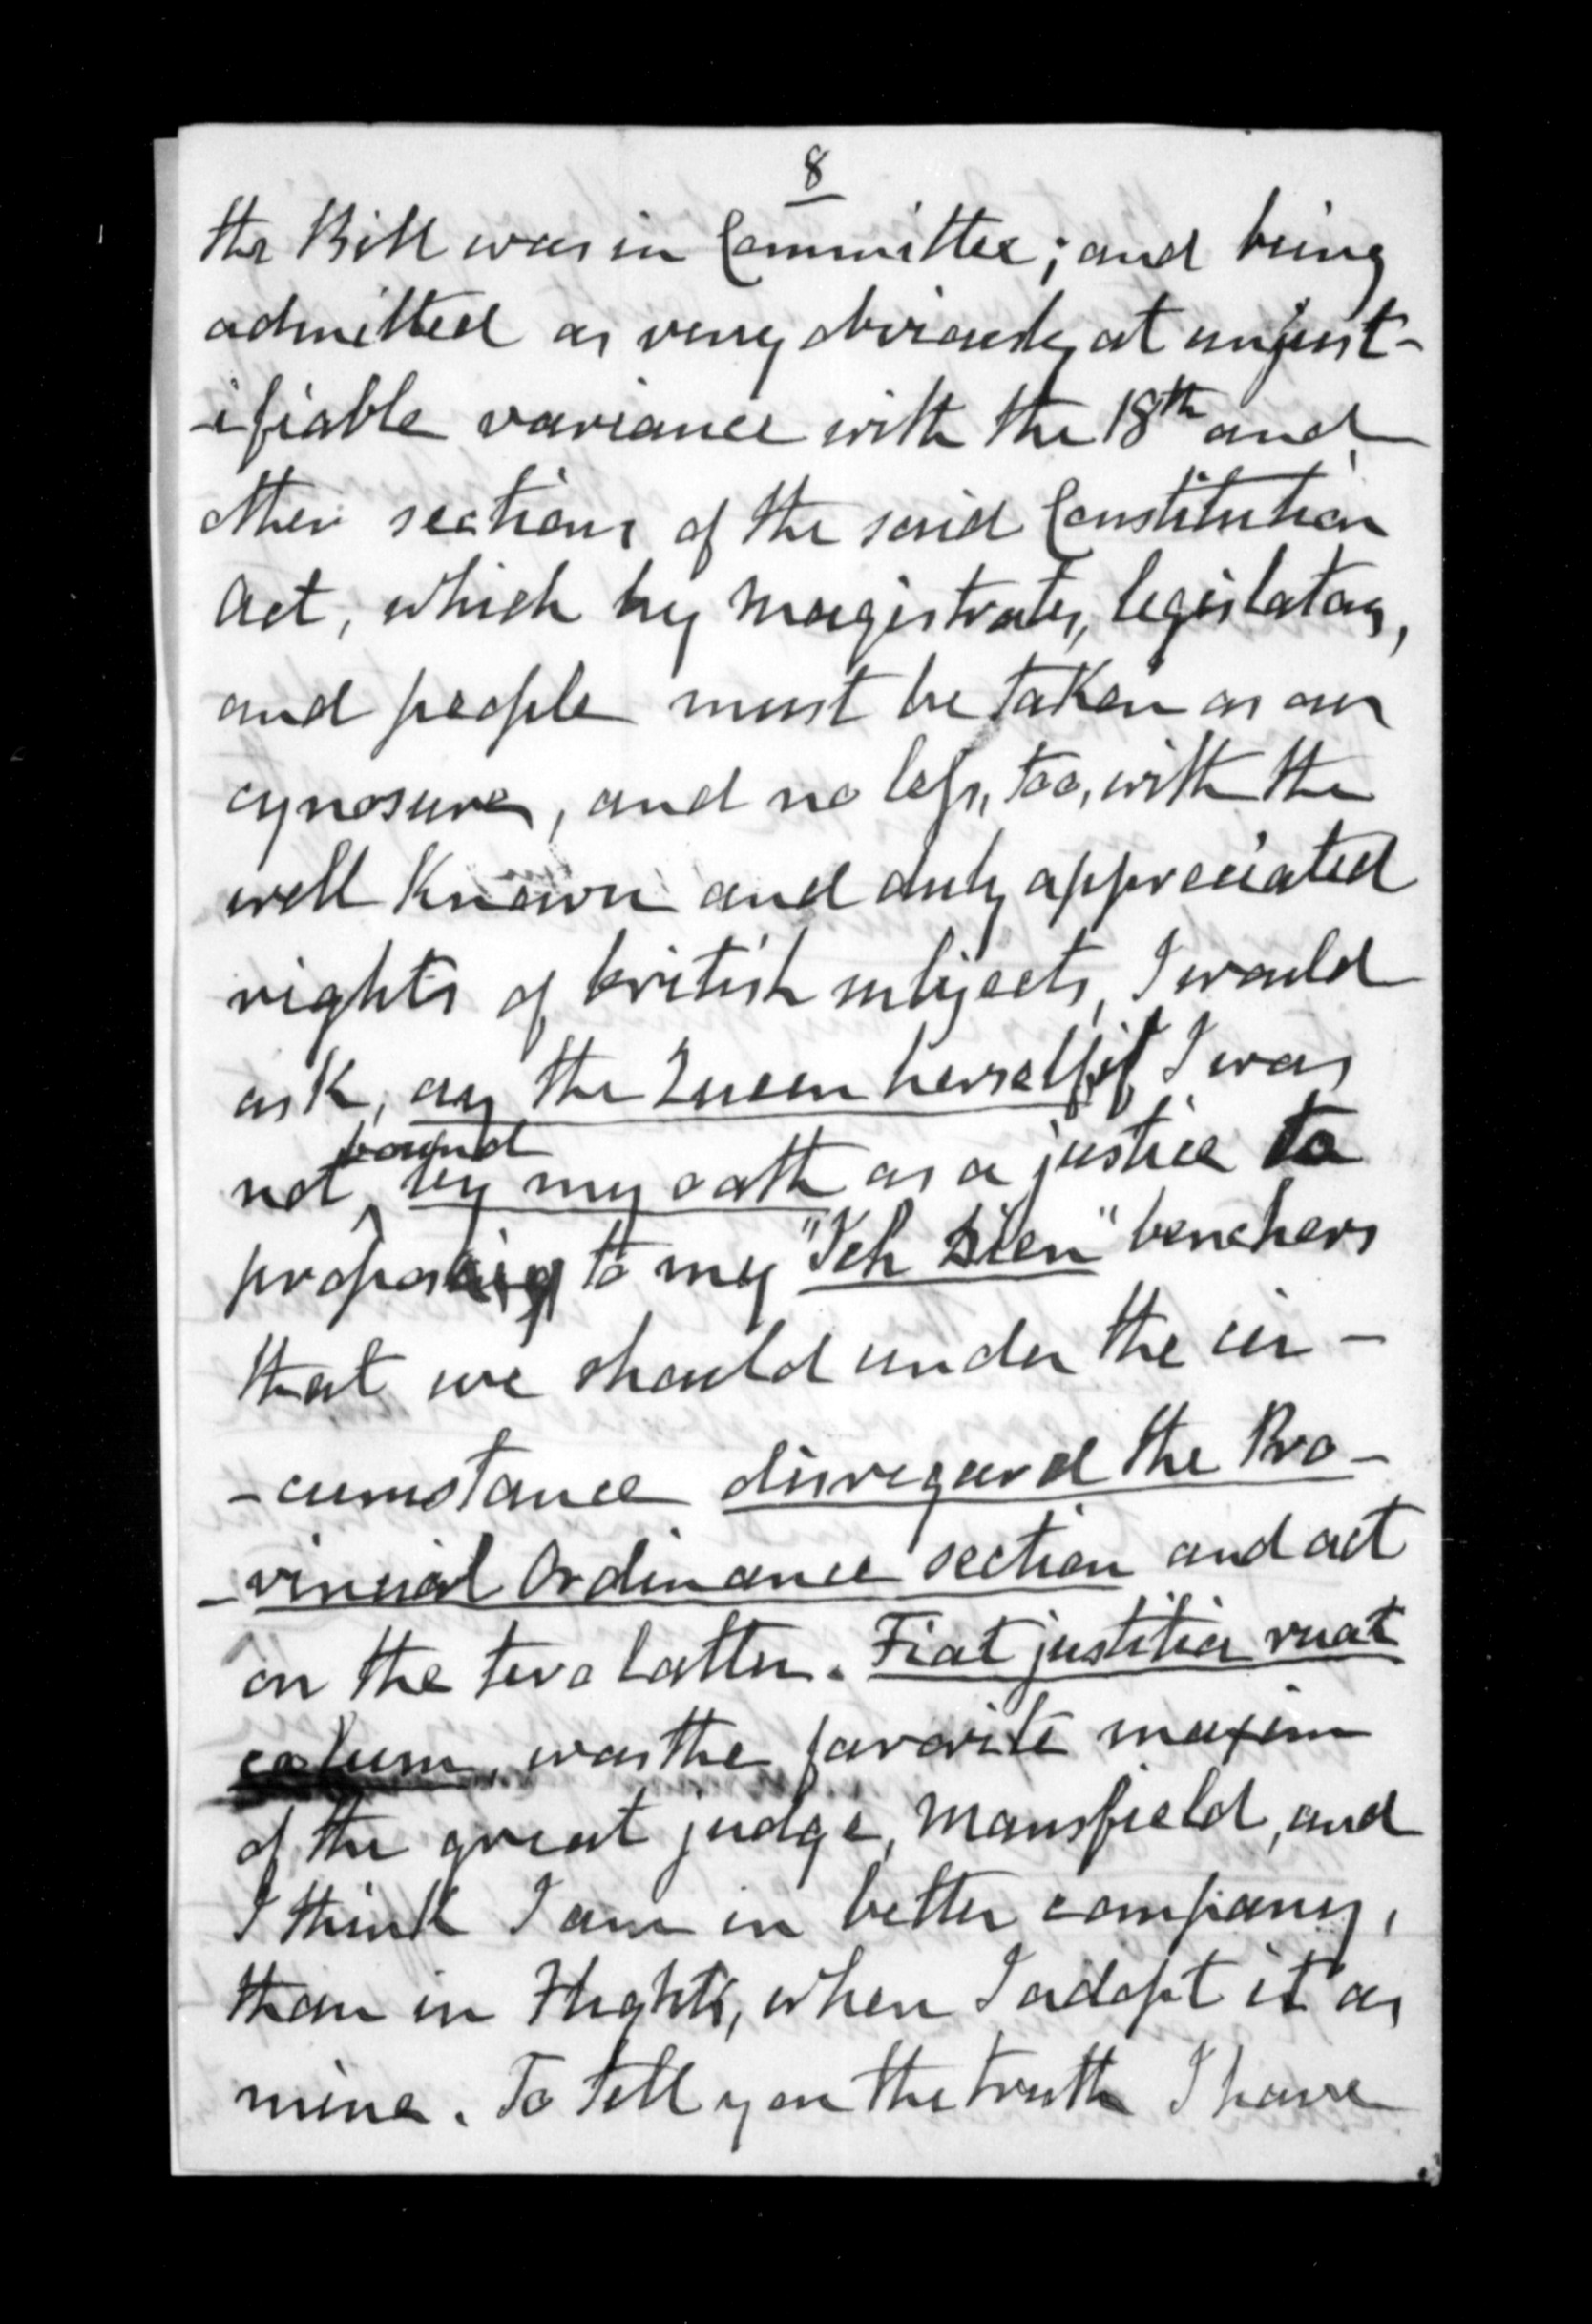 8
the Bill was in Committee; and being
admitted as very obviously at unjust-
-ifiable variance with the 18th and
other sections of the said Constitution
Act, which by Magistrates, legislators,
and people must be taken as our
cynosure, and no less, too, with the
well Known and duly appreciated
rights of british subjects, I would
ask, ay the Queen herself, if I was
bound
not by my oath as a justice to
to my "Ich Dien" benchers
that we should under the cir-
-cumstance disregard the Pro-
-vincial Ordinance section and act
on the two latter. Fiat justitia ruat
coelum, was the favorite maxim
of the great judge, Mansfield, and
I think I am in better company,
than in when I adopt it as
mine. To tell you the truth I have